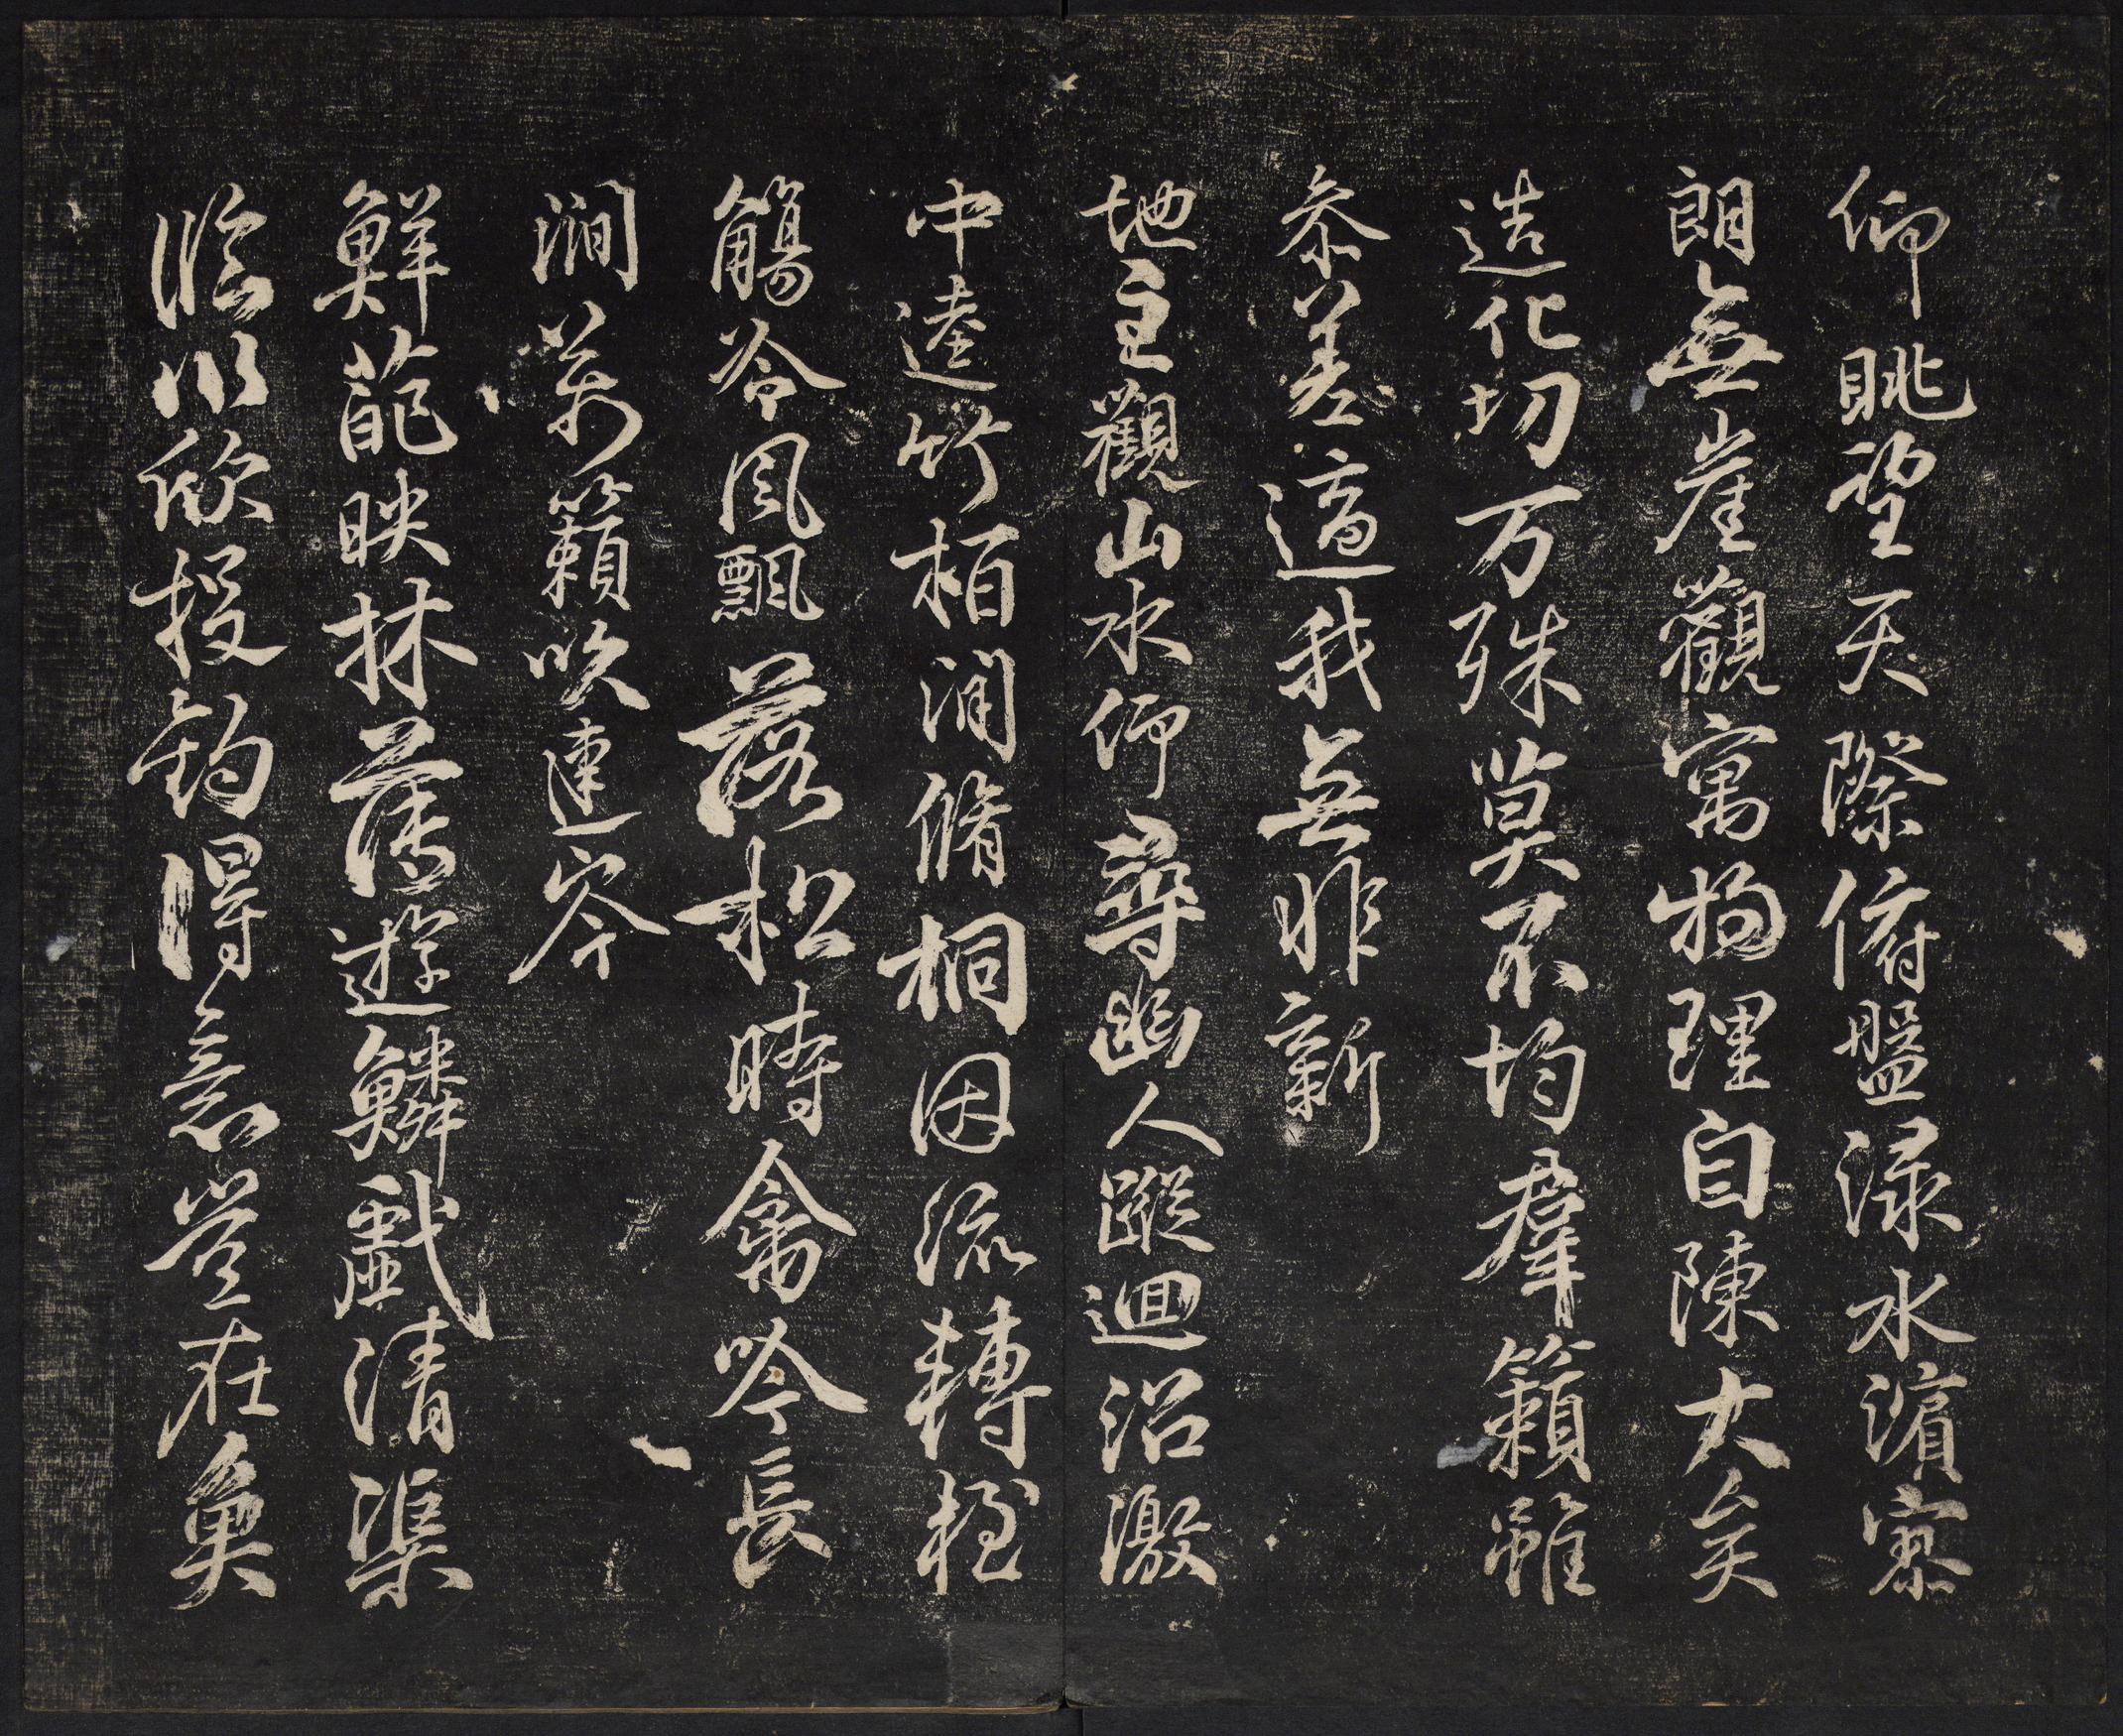 仰眺望天際俯盤渌水濵寥
朗無崖觀寓物理自陳大矣
造化切万殊莫不均羣籟雖
叅差適我無非新
地主觀山水仰尋幽人蹤迴沼激
中逵竹柏間脩桐因流轉輕
觴冷風飄落松時禽吟長
澗万籟吹連岑
鮮葩映林薄遊鱗戲清渠
臨川欣投釣得意豈在魚